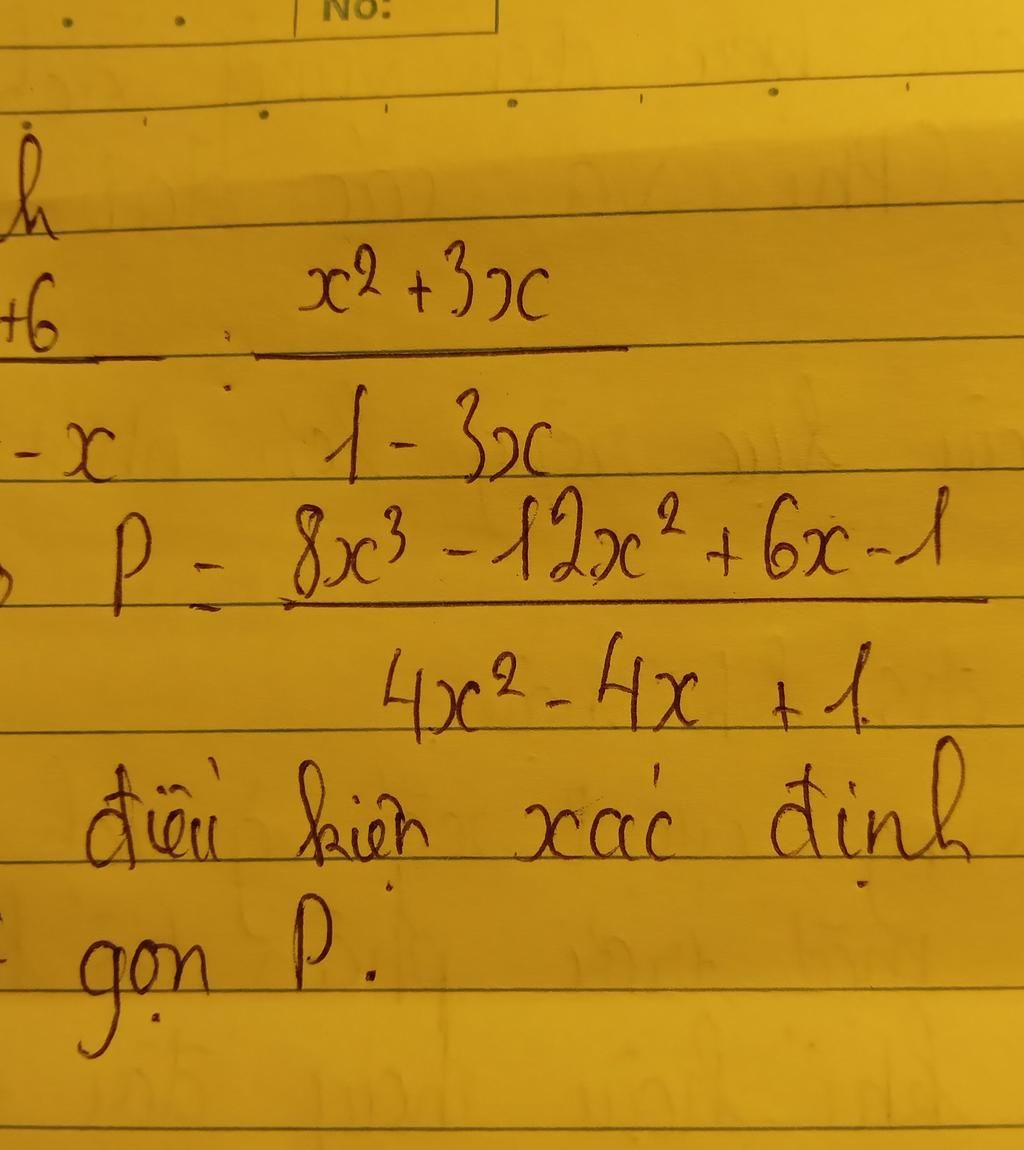 No:
h
+6 : x² + 3x
- x 1 - 3x
P = 8x³ - 12x² + 6x - 1
4x² - 4x + 1
điều kiện xác định
gọn P.